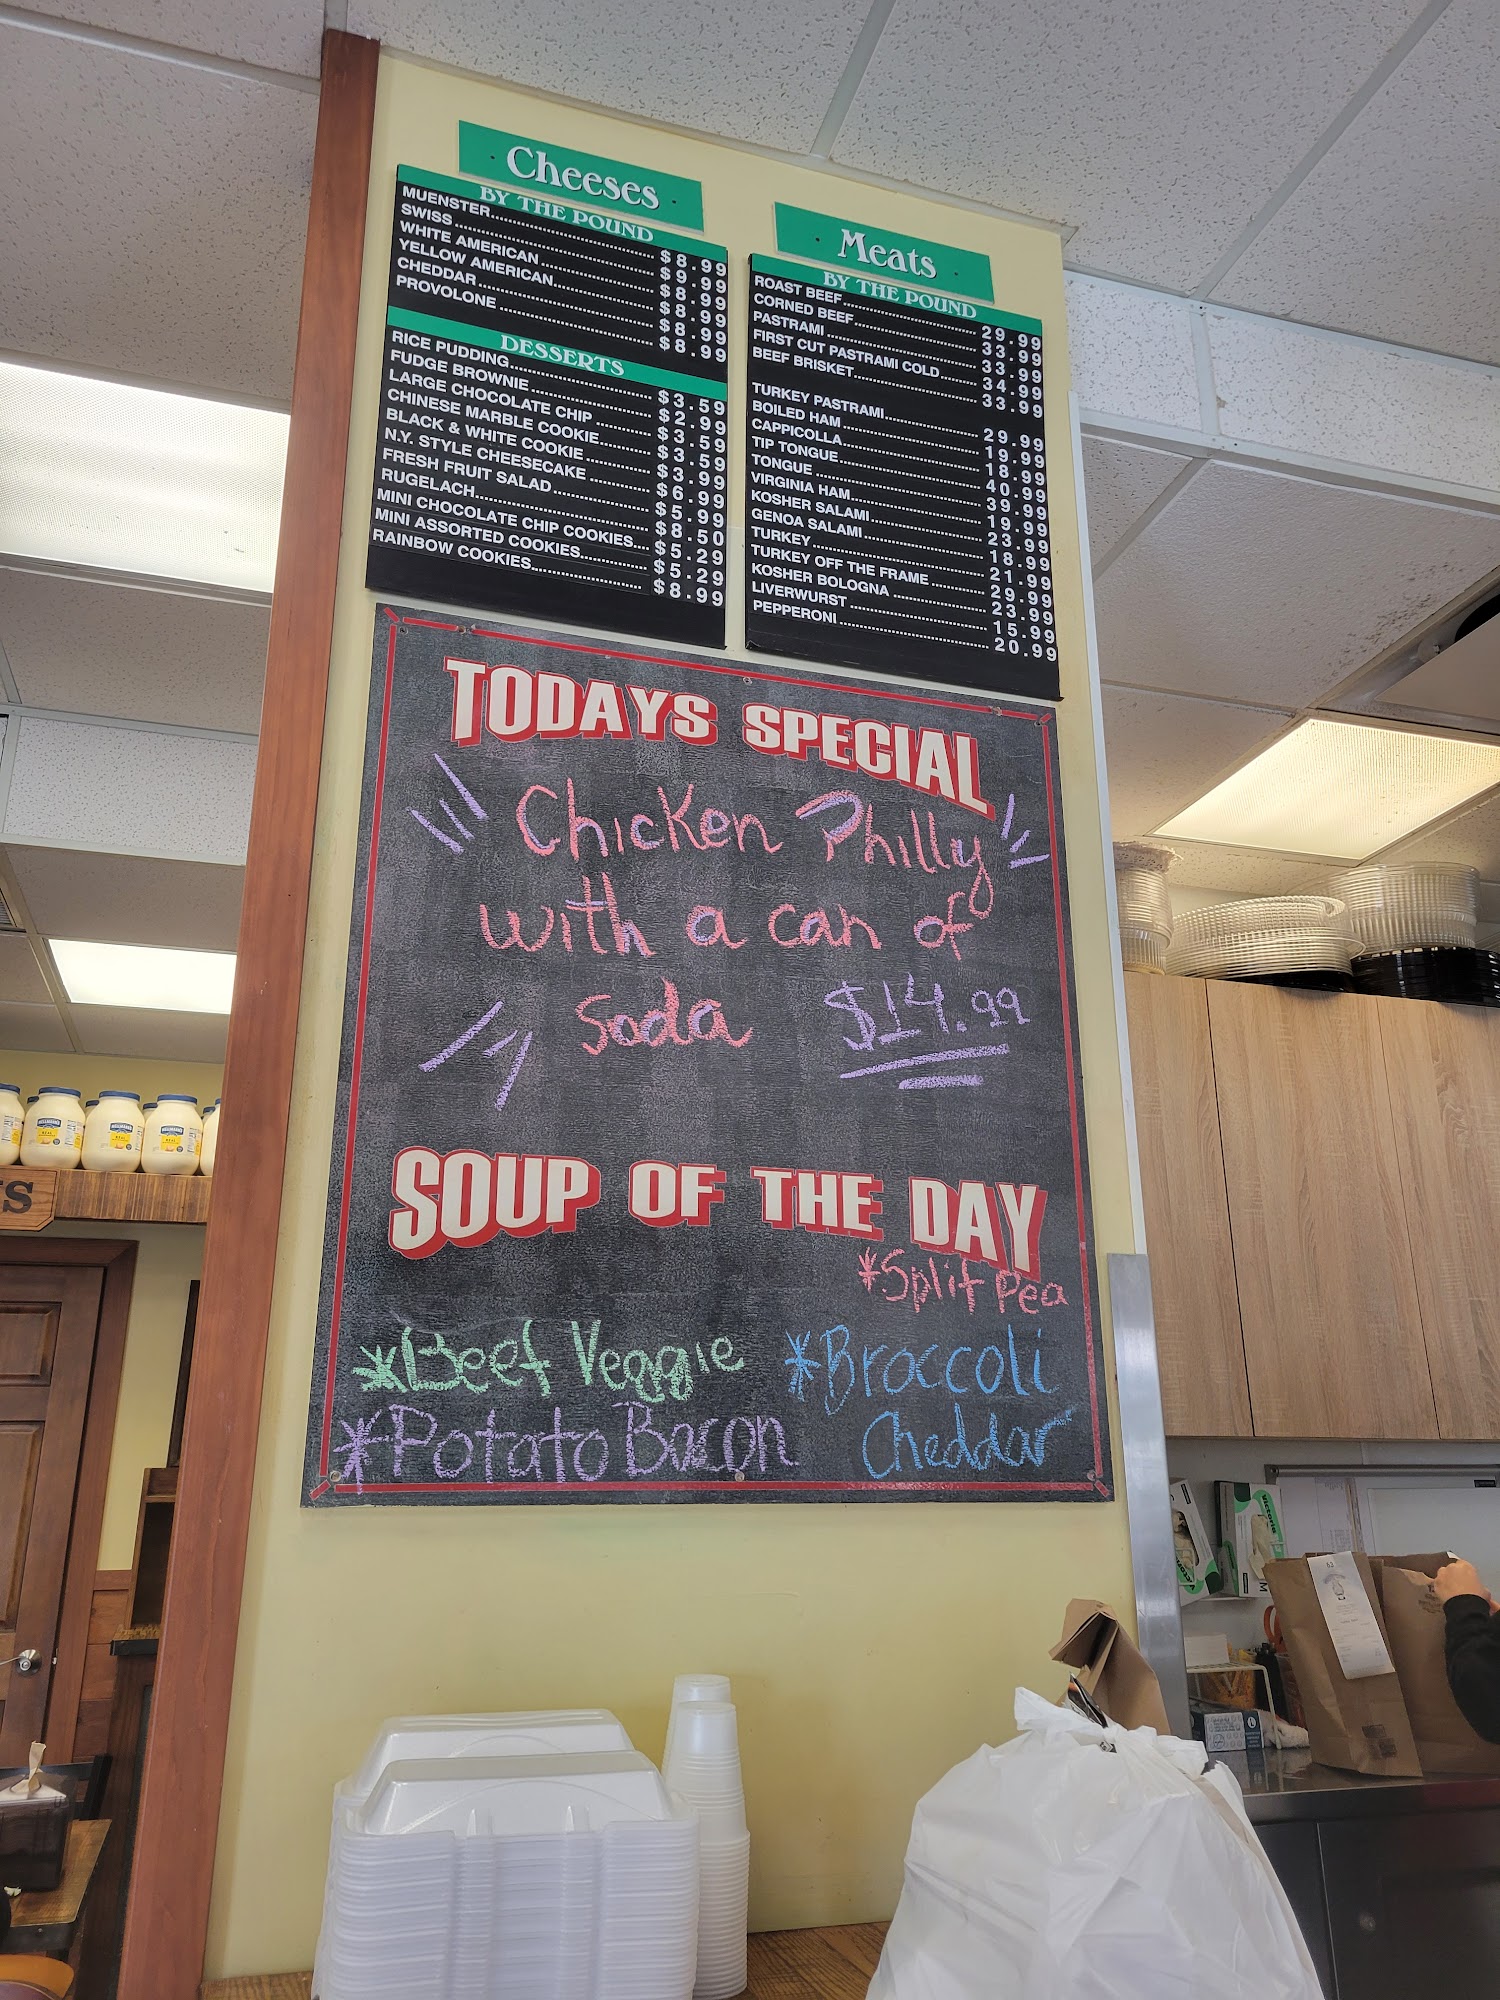 Cheeses
BY THE POUND
MUENSTER $8.99
SWISS $9.99
WHITE AMERICAN $8.99
YELLOW AMERICAN $8.99
CHEDDAR $8.99
PROVOLONE $8.99
DESSERTS
RICE PUDDING $3.59
FUDGE BROWNIE $2.99
LARGE CHOCOLATE CHIP $3.59
CHINESE MARBLE COOKIE $3.59
BLACK & WHITE COOKIE $3.99
N.Y. STYLE CHEESECAKE $6.99
FRESH FRUIT SALAD $5.99
RUGELACH $8.50
MINI CHOCOLATE CHIP COOKIES $5.29
MINI ASSORTED COOKIES $5.29
RAINBOW COOKIES $8.99
Meats
BY THE POUND
ROAST BEEF 29.99
CORNED BEEF 33.99
PASTRAMI 33.99
FIRST CUT PASTRAMI COLD 34.99
BEEF BRISKET 33.99
TURKEY PASTRAMI 29.99
BOILED HAM 19.99
CAPPICOLLA 18.99
TIP TONGUE 40.99
TONGUE 39.99
VIRGINIA HAM 19.99
KOSHER SALAMI 23.99
GENOA SALAMI 18.99
TURKEY 21.99
TURKEY OFF THE FRAME 29.99
KOSHER BOLOGNA 23.99
LIVERWURST 15.99
PEPPERONI 20.99
TODAYS SPECIAL
Chicken Philly
with a can of
soda $14.99
SOUP OF THE DAY
*Split Pea
*Beef Veggie
*Potato Bacon
*Broccoli
Cheddar
63
Victoria